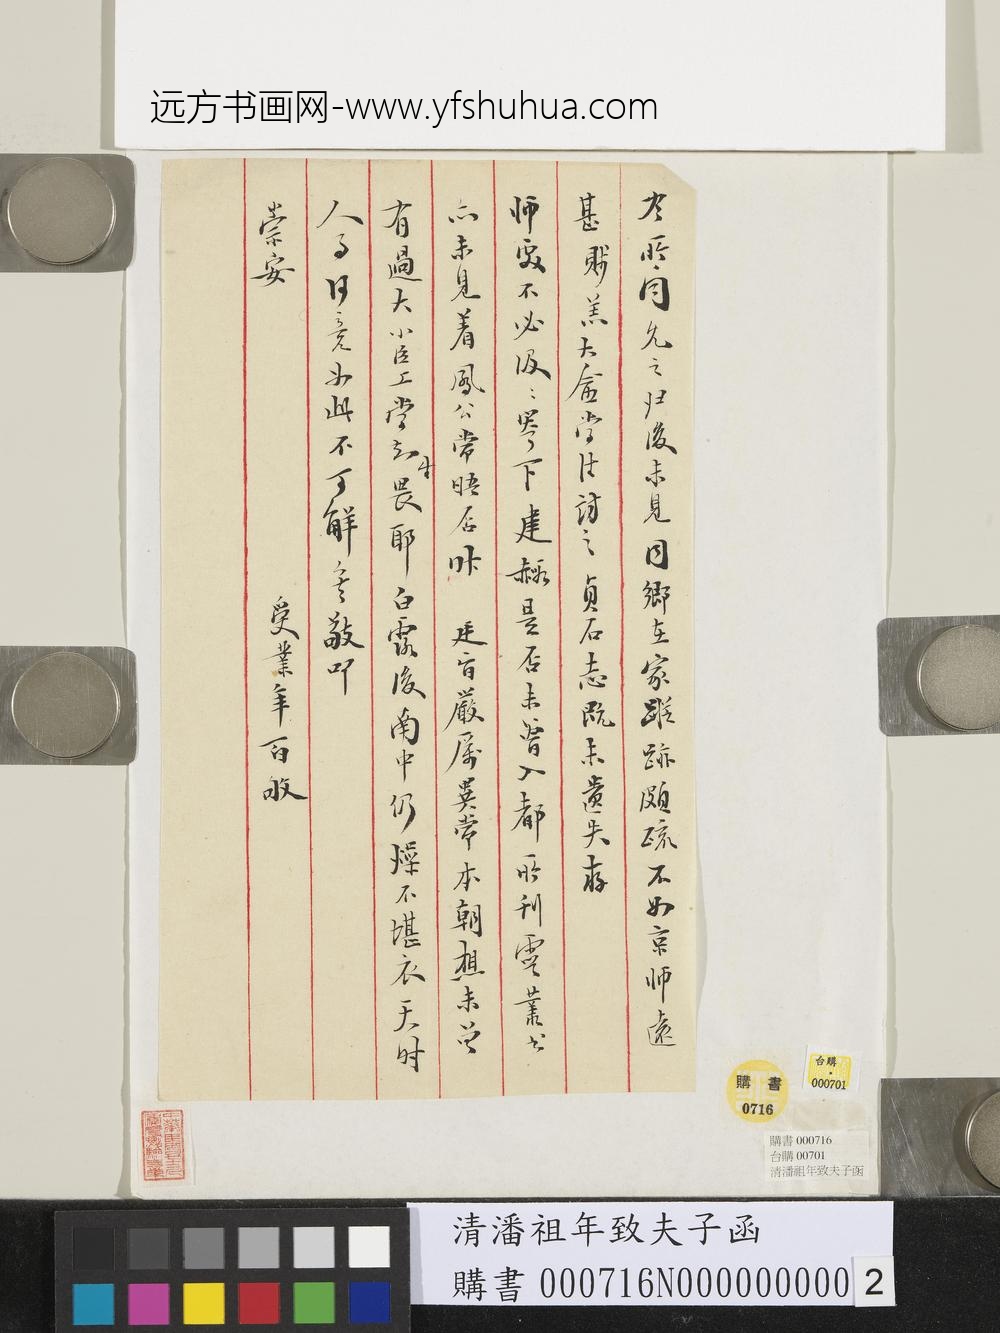 远方书画网-www.yfshuhua.com
所同允之归後未見同鄉在家蹤跡頗疏不如京師遠
甚 大 當往訪之貞石志既未遺失存
師處不必汲=粤下建 是否未曾入都所刊叢书
亦未見着鳳公常晤否昨 廷旨嚴厲異常本朝想未曾
有過大小臣工當知生畏耶白露後南中仍燥不堪衣天時
人事日竟如此不可解矣敬叩
崇安
受業年百敬
購書
0716
台購
000701
購書 000716
台購 00701
清潘祖年致夫子函
清潘祖年致夫子函
購書 000716N000000000 2